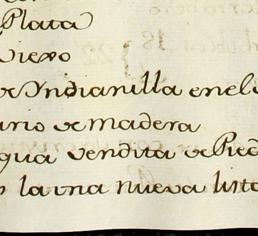 Plata
viexo
de Yndianilla en el
ario de madera
gua vendita de Pied
la una nueva lista